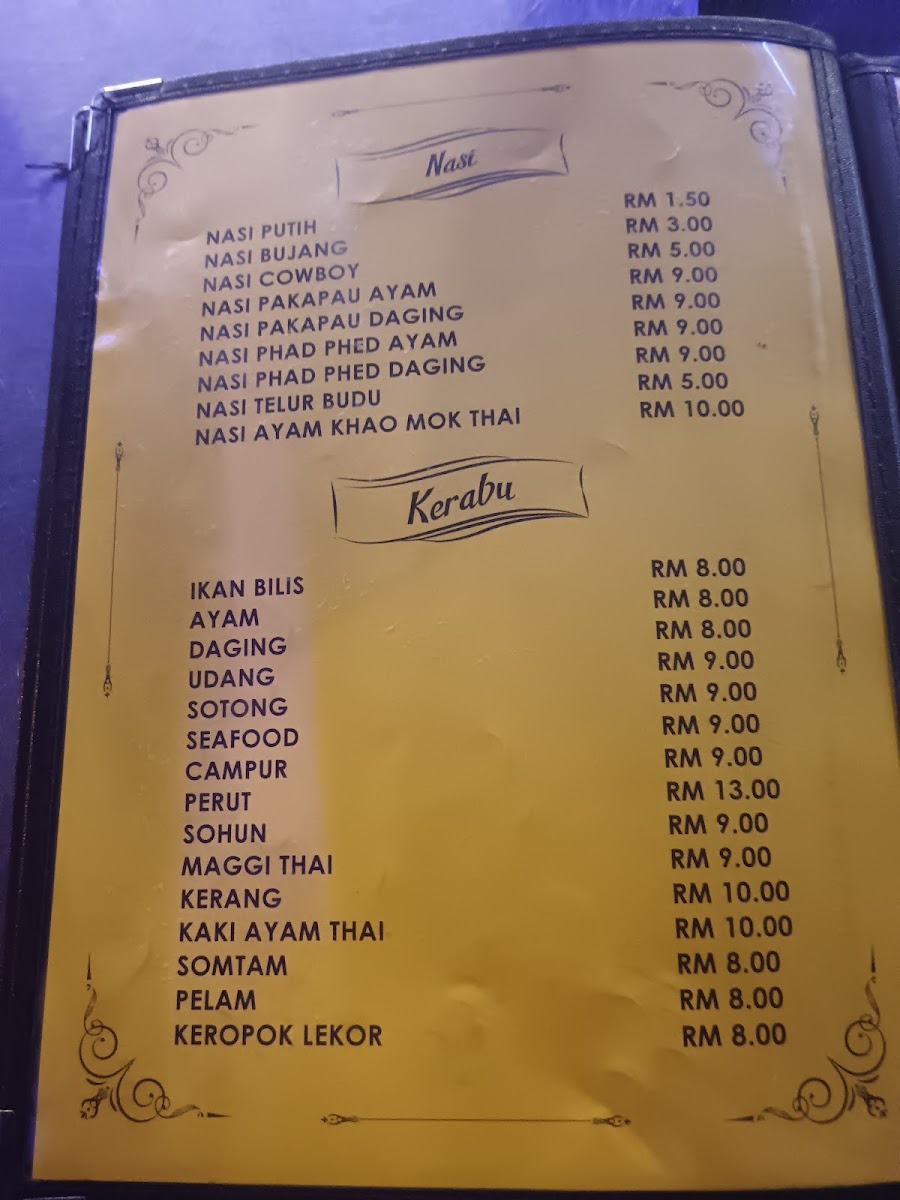 Nasi
NASI PUTIH RM 1.50
NASI BUJANG RM 3.00
NASI COWBOY RM 5.00
NASI PAKAPAU AYAM RM 9.00
NASI PAKAPAU DAGING RM 9.00
NASI PHAD PHED AYAM RM 9.00
NASI PHAD PHED DAGING RM 9.00
NASI TELUR BUDU RM 5.00
NASI AYAM KHAO MOK THAI RM 10.00
Kerabu
IKAN BILIS RM 8.00
AYAM RM 8.00
DAGING RM 8.00
UDANG RM 9.00
SOTONG RM 9.00
SEAFOOD RM 9.00
CAMPUR RM 9.00
PERUT RM 13.00
SOHUN RM 9.00
MAGGI THAI RM 9.00
KERANG RM 10.00
KAKI AYAM THAI RM 10.00
SOMTAM RM 8.00
PELAM RM 8.00
KEROPOK LEKOR RM 8.00